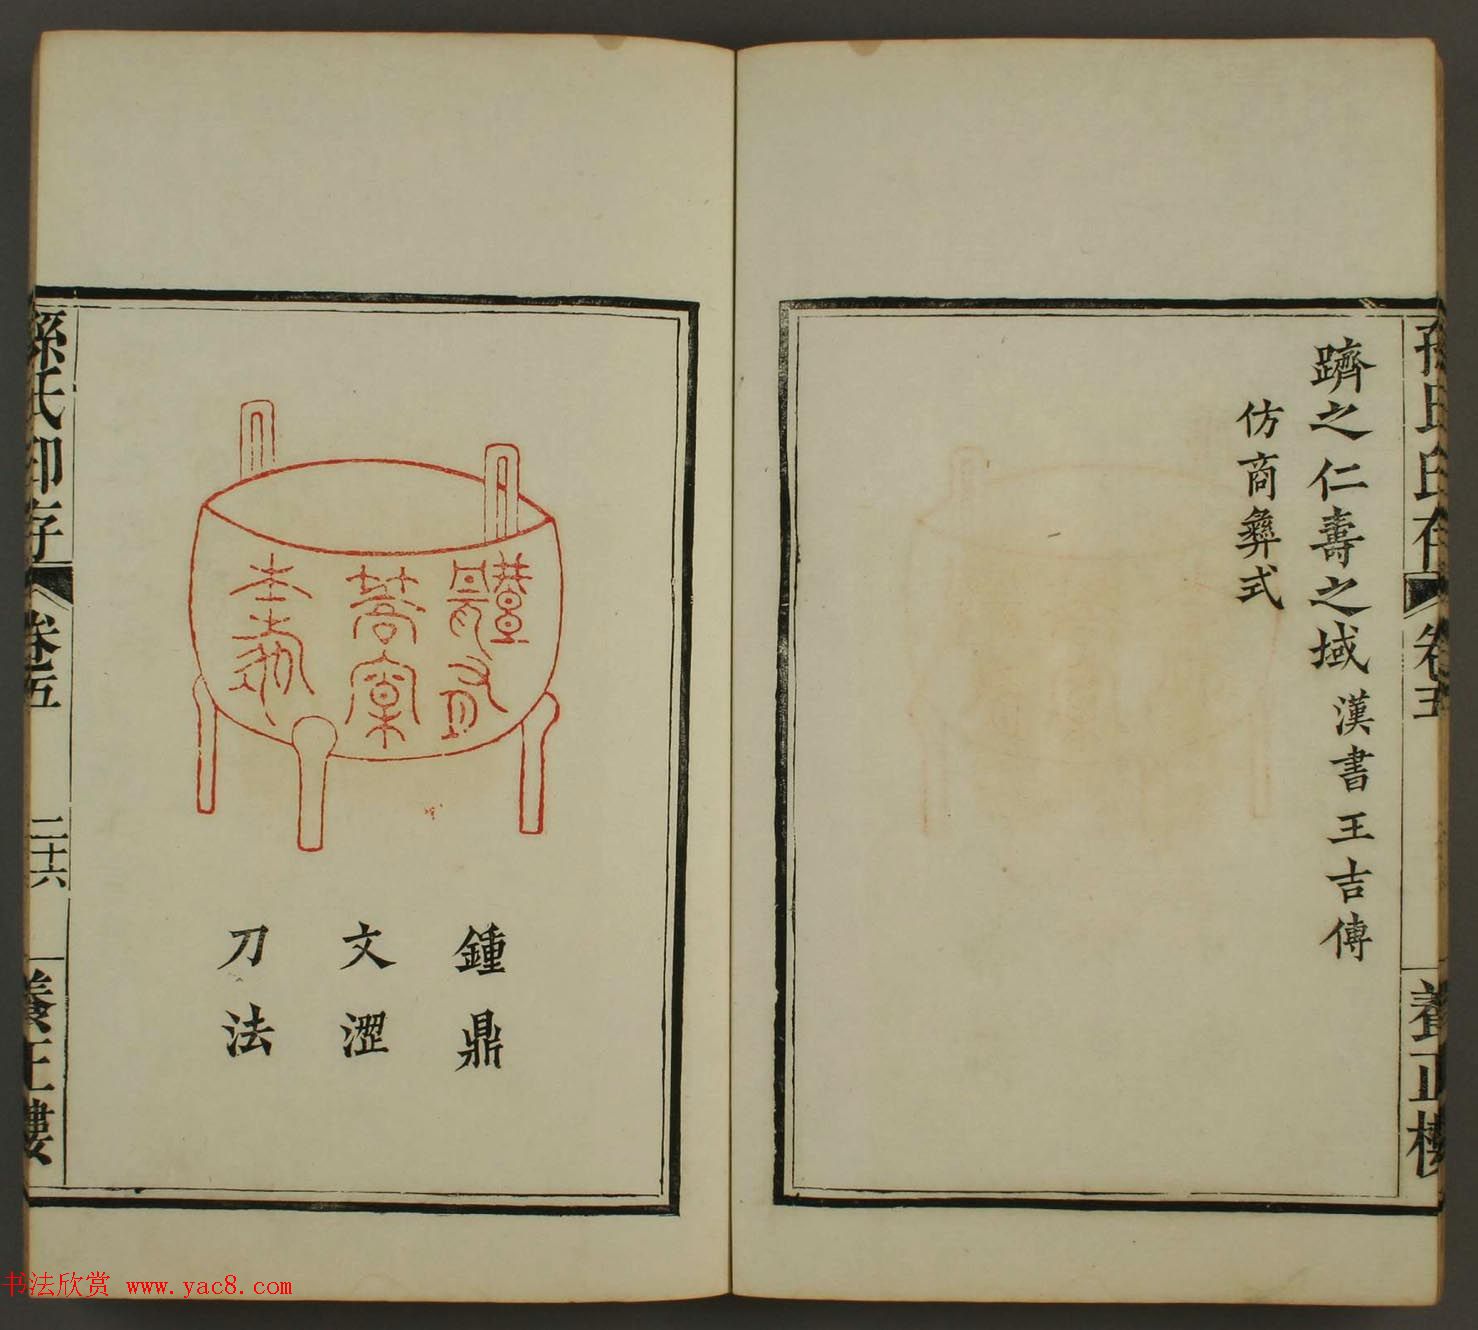 孫氏印存
卷五
養正樓
躋之仁壽之域 漢書王吉傳
仿商彝式
鍾鼎
文澀
刀法
孫氏印存
卷五
二十六
養正樓
书法欣赏 www.yac8.com